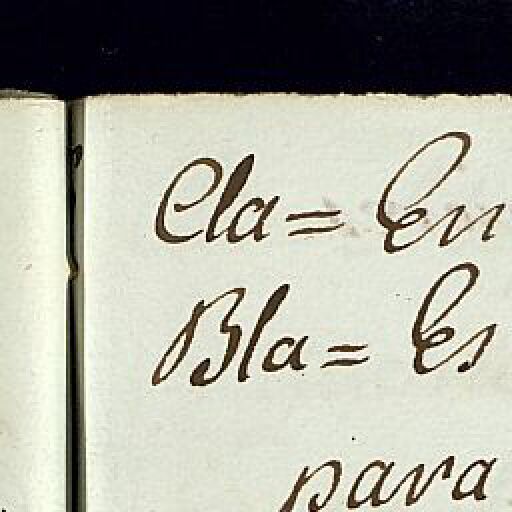 Cla= En
Bla= Es
para